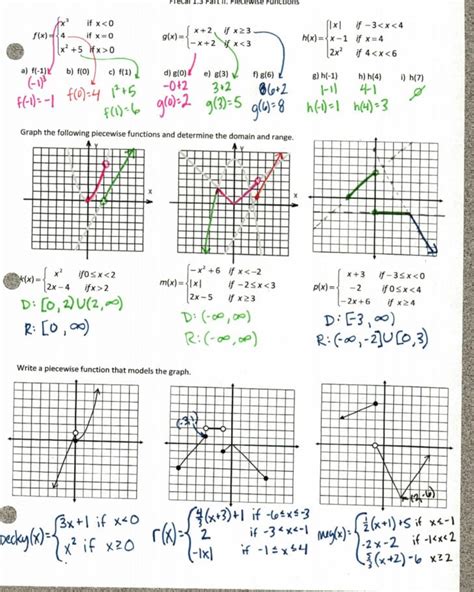 Precal 1.3 Part II: Piecewise Functions
f(x)= { x³ if x<0
4 if x=0
x²+5 if x>0
g(x)= { x+2, if x≥3
-x+2 if x<3
h(x)= { |x| if -3<x<4
x-1 if x=4
2x² if 4<x<6
a) f(-1) b) f(0) c) f(1) d) g(0) e) g(3) f) g(6) g) h(-1) h) h(4) i) h(7)
(-1)³ f(0)=4 1²+5 -0+2 3+2 6+2 |-1| 4-1 ∅
f(-1)=-1 f(1)=6 g(0)=2 g(3)=5 g(6)=8 h(-1)=1 h(4)=3
Graph the following piecewise functions and determine the domain and range.
Y Y
X X
k(x)= { x² if 0≤x<2
2x-4 if x>2
D: [0,2)U(2,∞)
R: [0,∞)
m(x)= { -x²+6 if x<-2
|x| if -2≤x<3
2x-5 if x≥3
D: (-∞,∞)
R: (-∞,∞)
p(x)= { x+3 if -3≤x<0
-2 if 0≤x<4
-2x+6 if x≥4
D: [-3,∞)
R: (-∞,-2]U[0,3)
Write a piecewise function that models the graph.
(2,-6)
becky(x)= { 3x+1 if x<0
x² if x≥0
r(x)= { 4/3(x+3)+1 if -6≤x≤-3
2 if -3<x<-1
-|x| if -1≤x≤4
meg(x)= { 1/2(x+1)+5 if x<-1
-2x-2 if -1<x<2
5/3(x+2)-6 x≥2